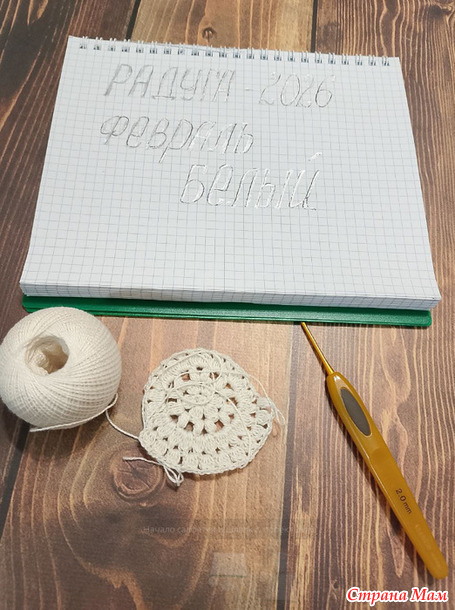 РАДУГА - 2026
ФЕВРАЛЬ
БЕЛЫЙ
2.0 mm
Страна Мам